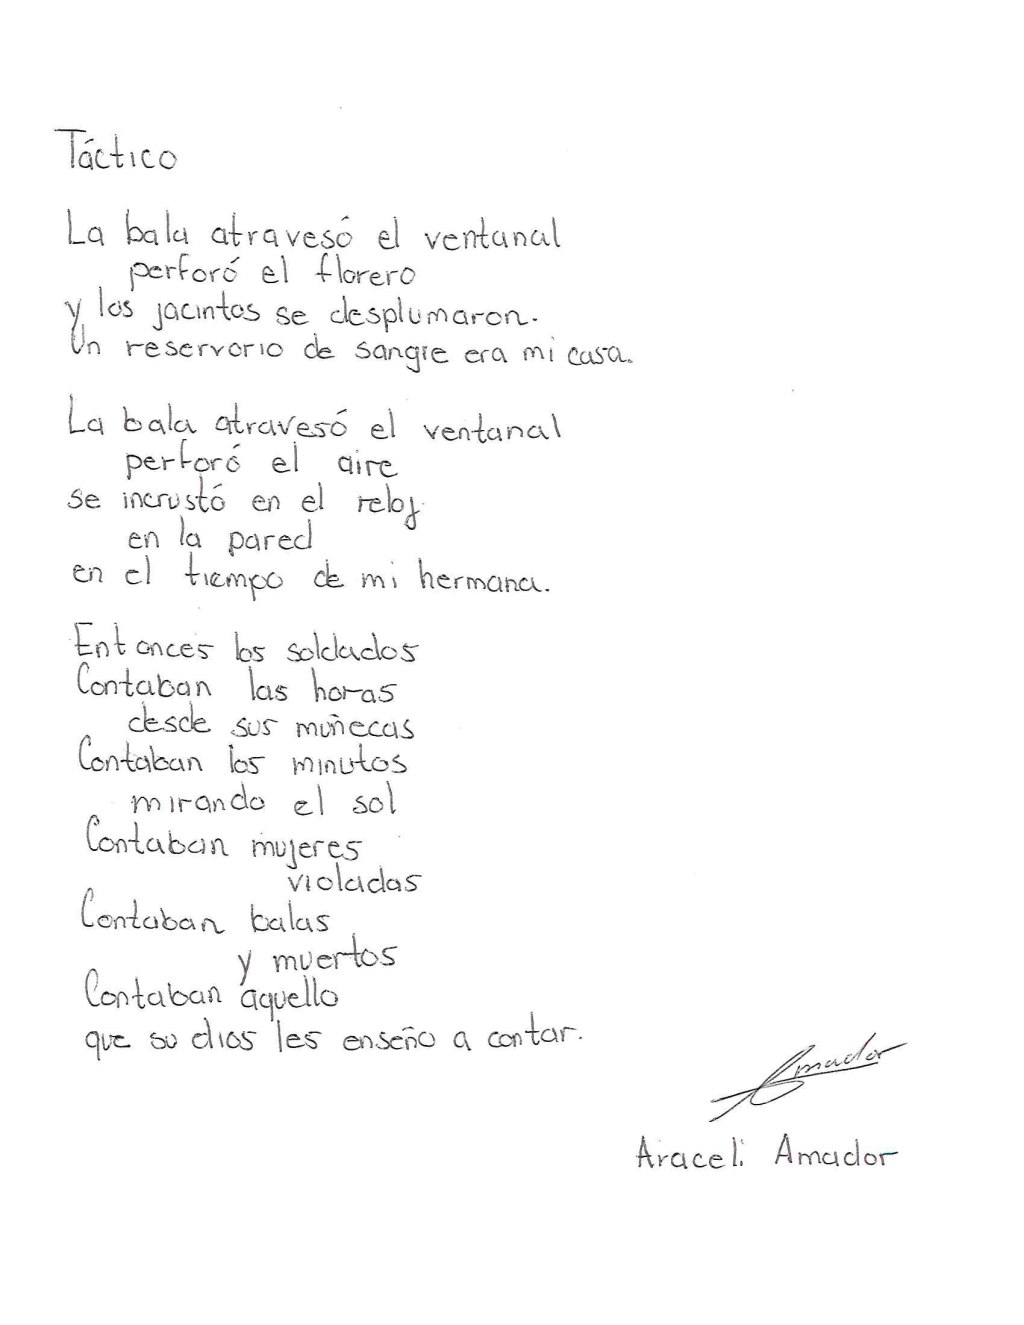 Táctico
La bala atravesó el ventanal
perforó el florero
y los jacintos se desplumaron.
Un reservorio de sangre era mi casa.
La bala atravesó el ventanal
perforó el aire
se incrustó en el reloj
en la pared
en el tiempo de mi hermana.
Entonces los soldados
Contaban las horas
desde sus muñecas
Contaban los minutos
mirando el sol
Contaban mujeres
violadas
Contaban balas
y muertos
Contaban aquello
que su dios les enseño a contar.
Amador
Araceli Amador